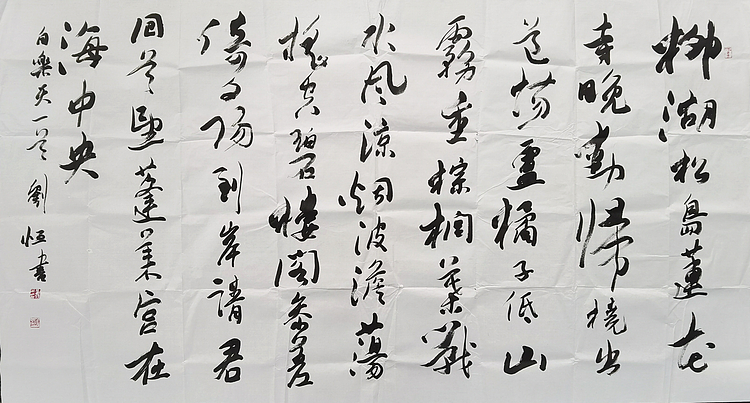 柳湖松島蓮花
寺晚動歸橈出
道場盧橘子低山
霧重棕櫚葉戰
水風涼烟波澹蕩
搖空碧樓閣參差
倚夕陽到岸請君
回首望蓬萊宮在
海中央
白樂天一首 劉恒書